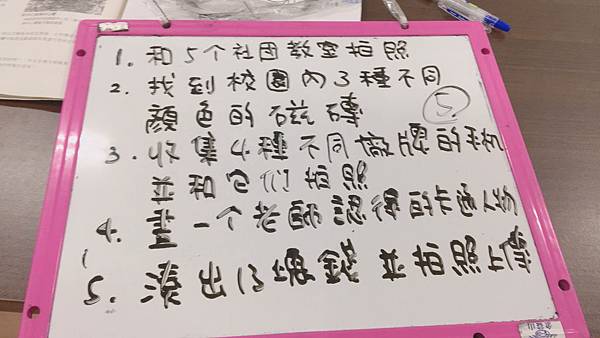 1. 和5个社团教室拍照
2. 找到校園內3種不同
顏色的磁磚
5.
3. 收集4種不同廠牌的手机
並和它们拍照
4. 畫一个老師認得的卡通人物
5. 湊出13塊錢並拍照上傳